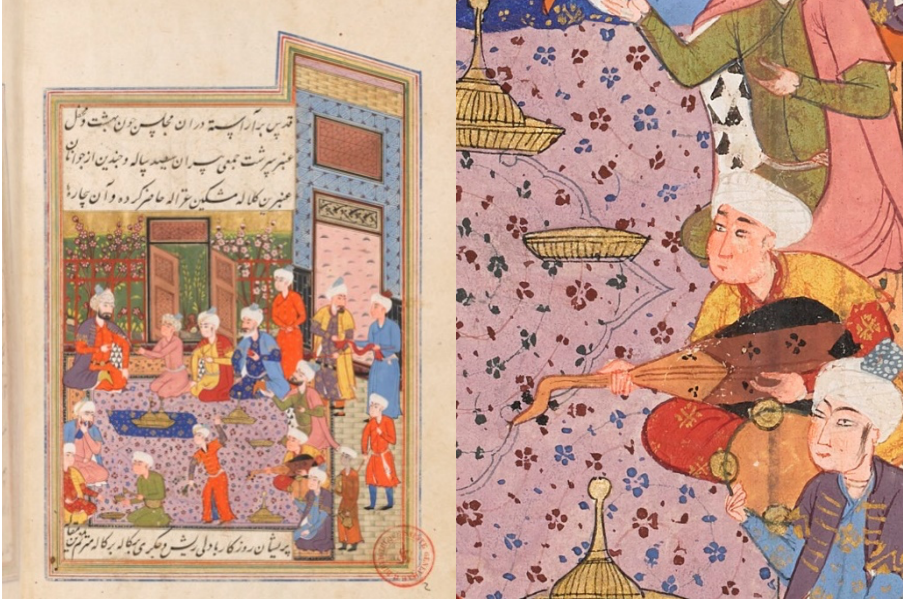 قدیس به آراسته در ان مجلس چون بهشت و محفل
عنبر سرشت جمعی پیران سفید سباله و چندین از جوانان
عنبرین کلاله مشکین غزاله حاضر کرده و آن بیچاره
پریشان روزکار با دلی ریش و جکری پرکاله پرکاله مترنم